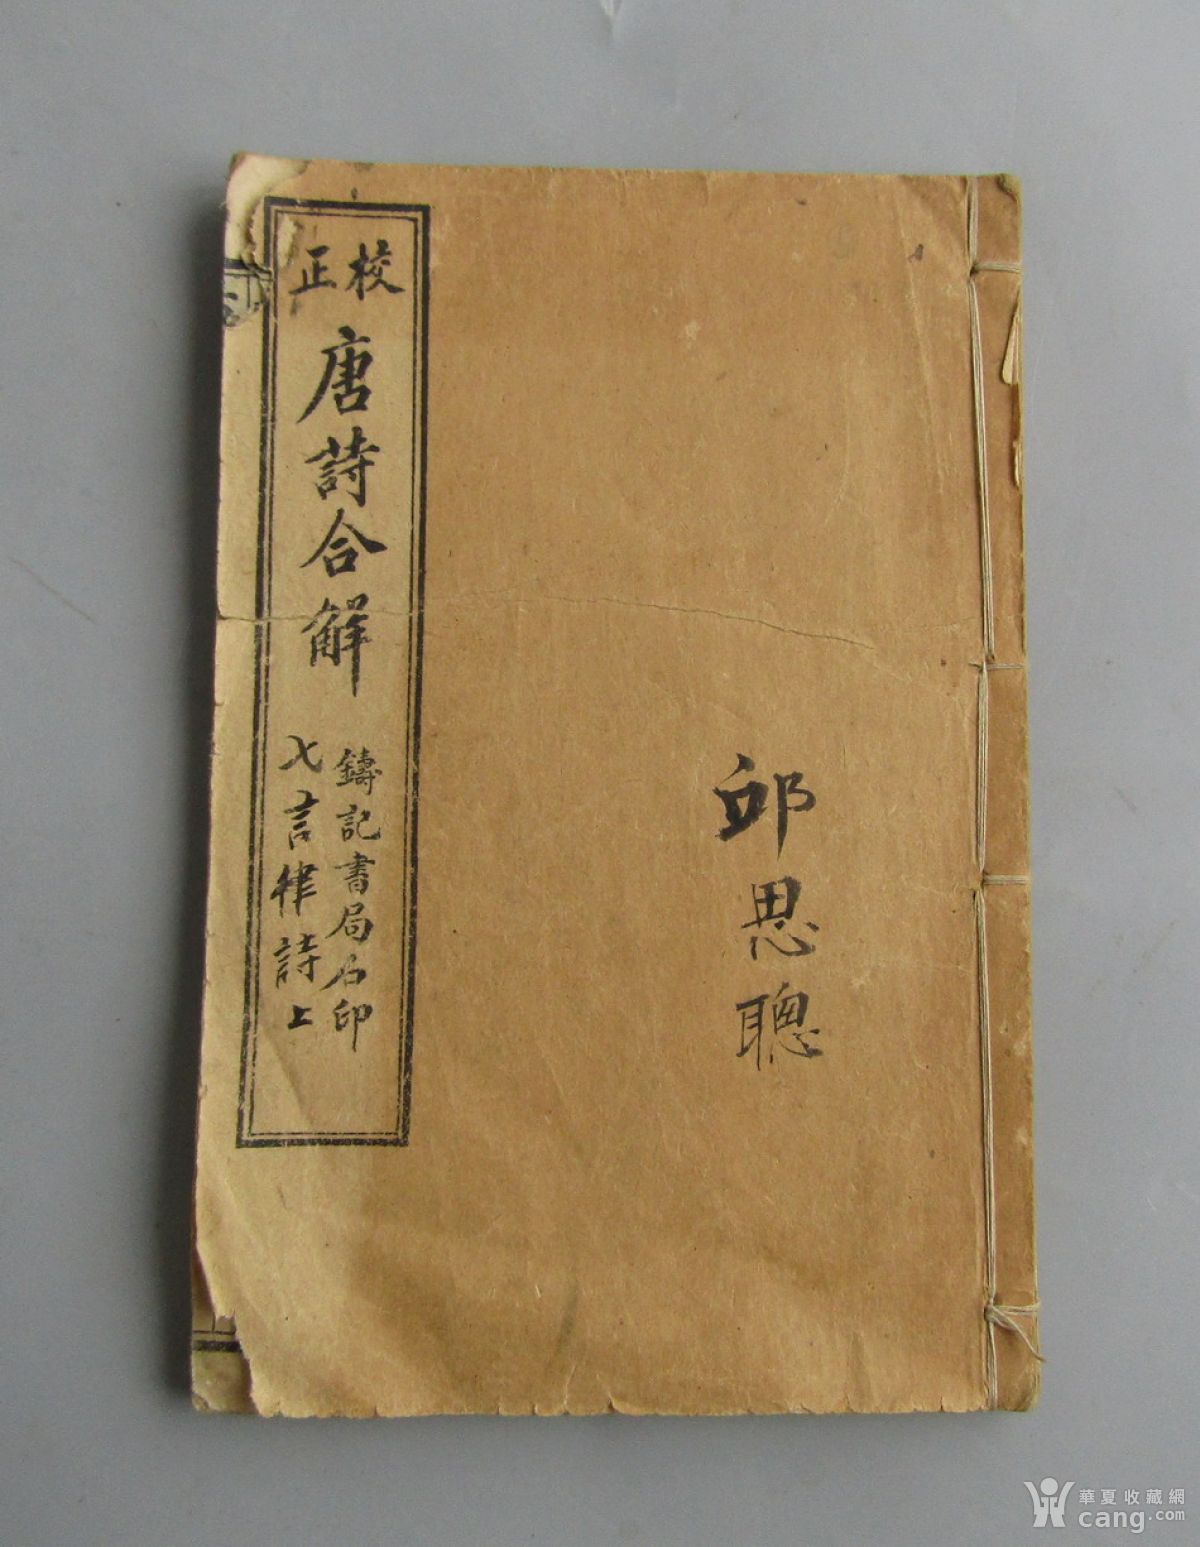 邱思聰
校正
唐詩合解
鑄記書局石印
七言律詩上
華夏收藏網
cang.com